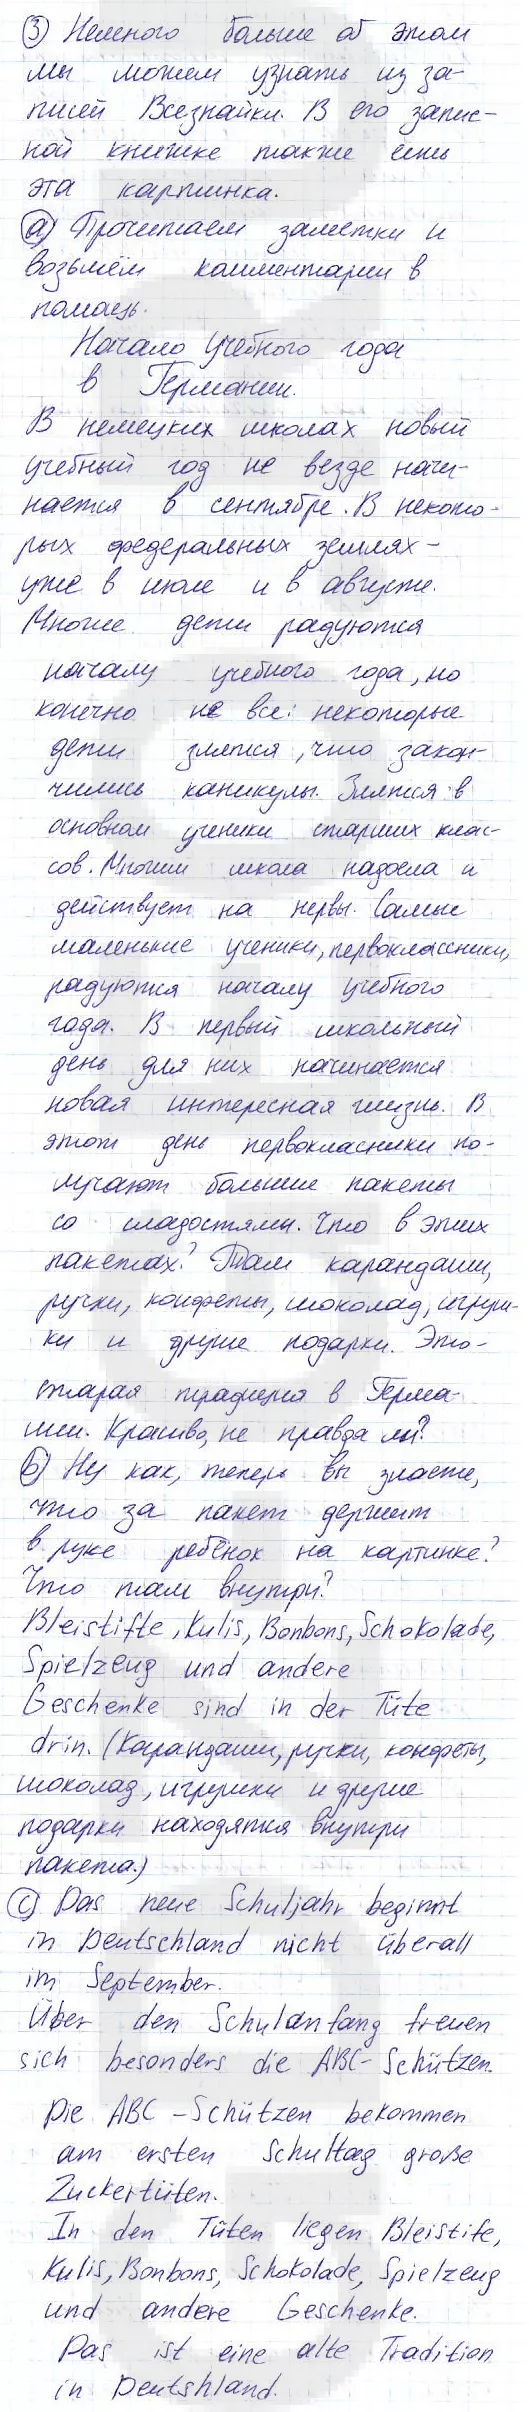 ③ Немного больше об этом
мы можем узнать из за-
писей Всезнайки. В его запис-
ной книжке также есть
эта картинка.
ⓐ Прочитаем заметки и
возьмём комментарии в
помощь.
Начало учебного года
в Германии.
В немецких школах новый
учебный год не везде начи-
нается в сентябре. В некото-
рых федеральных землях -
уже в июле и в августе.
Многие дети радуются
началу учебного года, но
конечно не все: некоторые
дети злятся, что закон-
чились каникулы. Злятся в
основном ученики старших клас-
сов. Многим школа надоела и
действует на нервы. Самые
маленькие ученики, первоклассники,
радуются началу учебного
года. В первый школьный
день для них начинается
новая интересная жизнь. В
этот день первокласники по-
лучают большие пакеты
со сладостями. Что в этих
пакетах? Там карандаши,
ручки, конфеты, шоколад, игруш-
ки и другие подарки. Это-
старая традиция в Герма-
нии. Красиво, не правда ли?
ⓑ Ну как, теперь вы знаете,
что за пакет держит
в руке ребёнок на картинке?
Что там внутри?
Bleistifte, Kulis, Bonbons, Schokolade,
Spielzeug und andere
Geschenke sind in der Tüte
drin. (Карандаши, ручки, конфеты,
шоколад, игрушки и другие
подарки находятся внутри
пакета.)
ⓒ Das neue Schuljahr beginnt
in Deutschland nicht überall
im September.
Über den Schulanfang freuen
sich besonders die ABC-Schützen.
Die ABC-Schützen bekommen
am ersten Schultag große
Zuckertüten.
In den Tüten liegen Bleistife,
Kulis, Bonbons, Schokolade, Spielzeug
und andere Geschenke.
Das ist eine alte Tradition
in Deutshland.